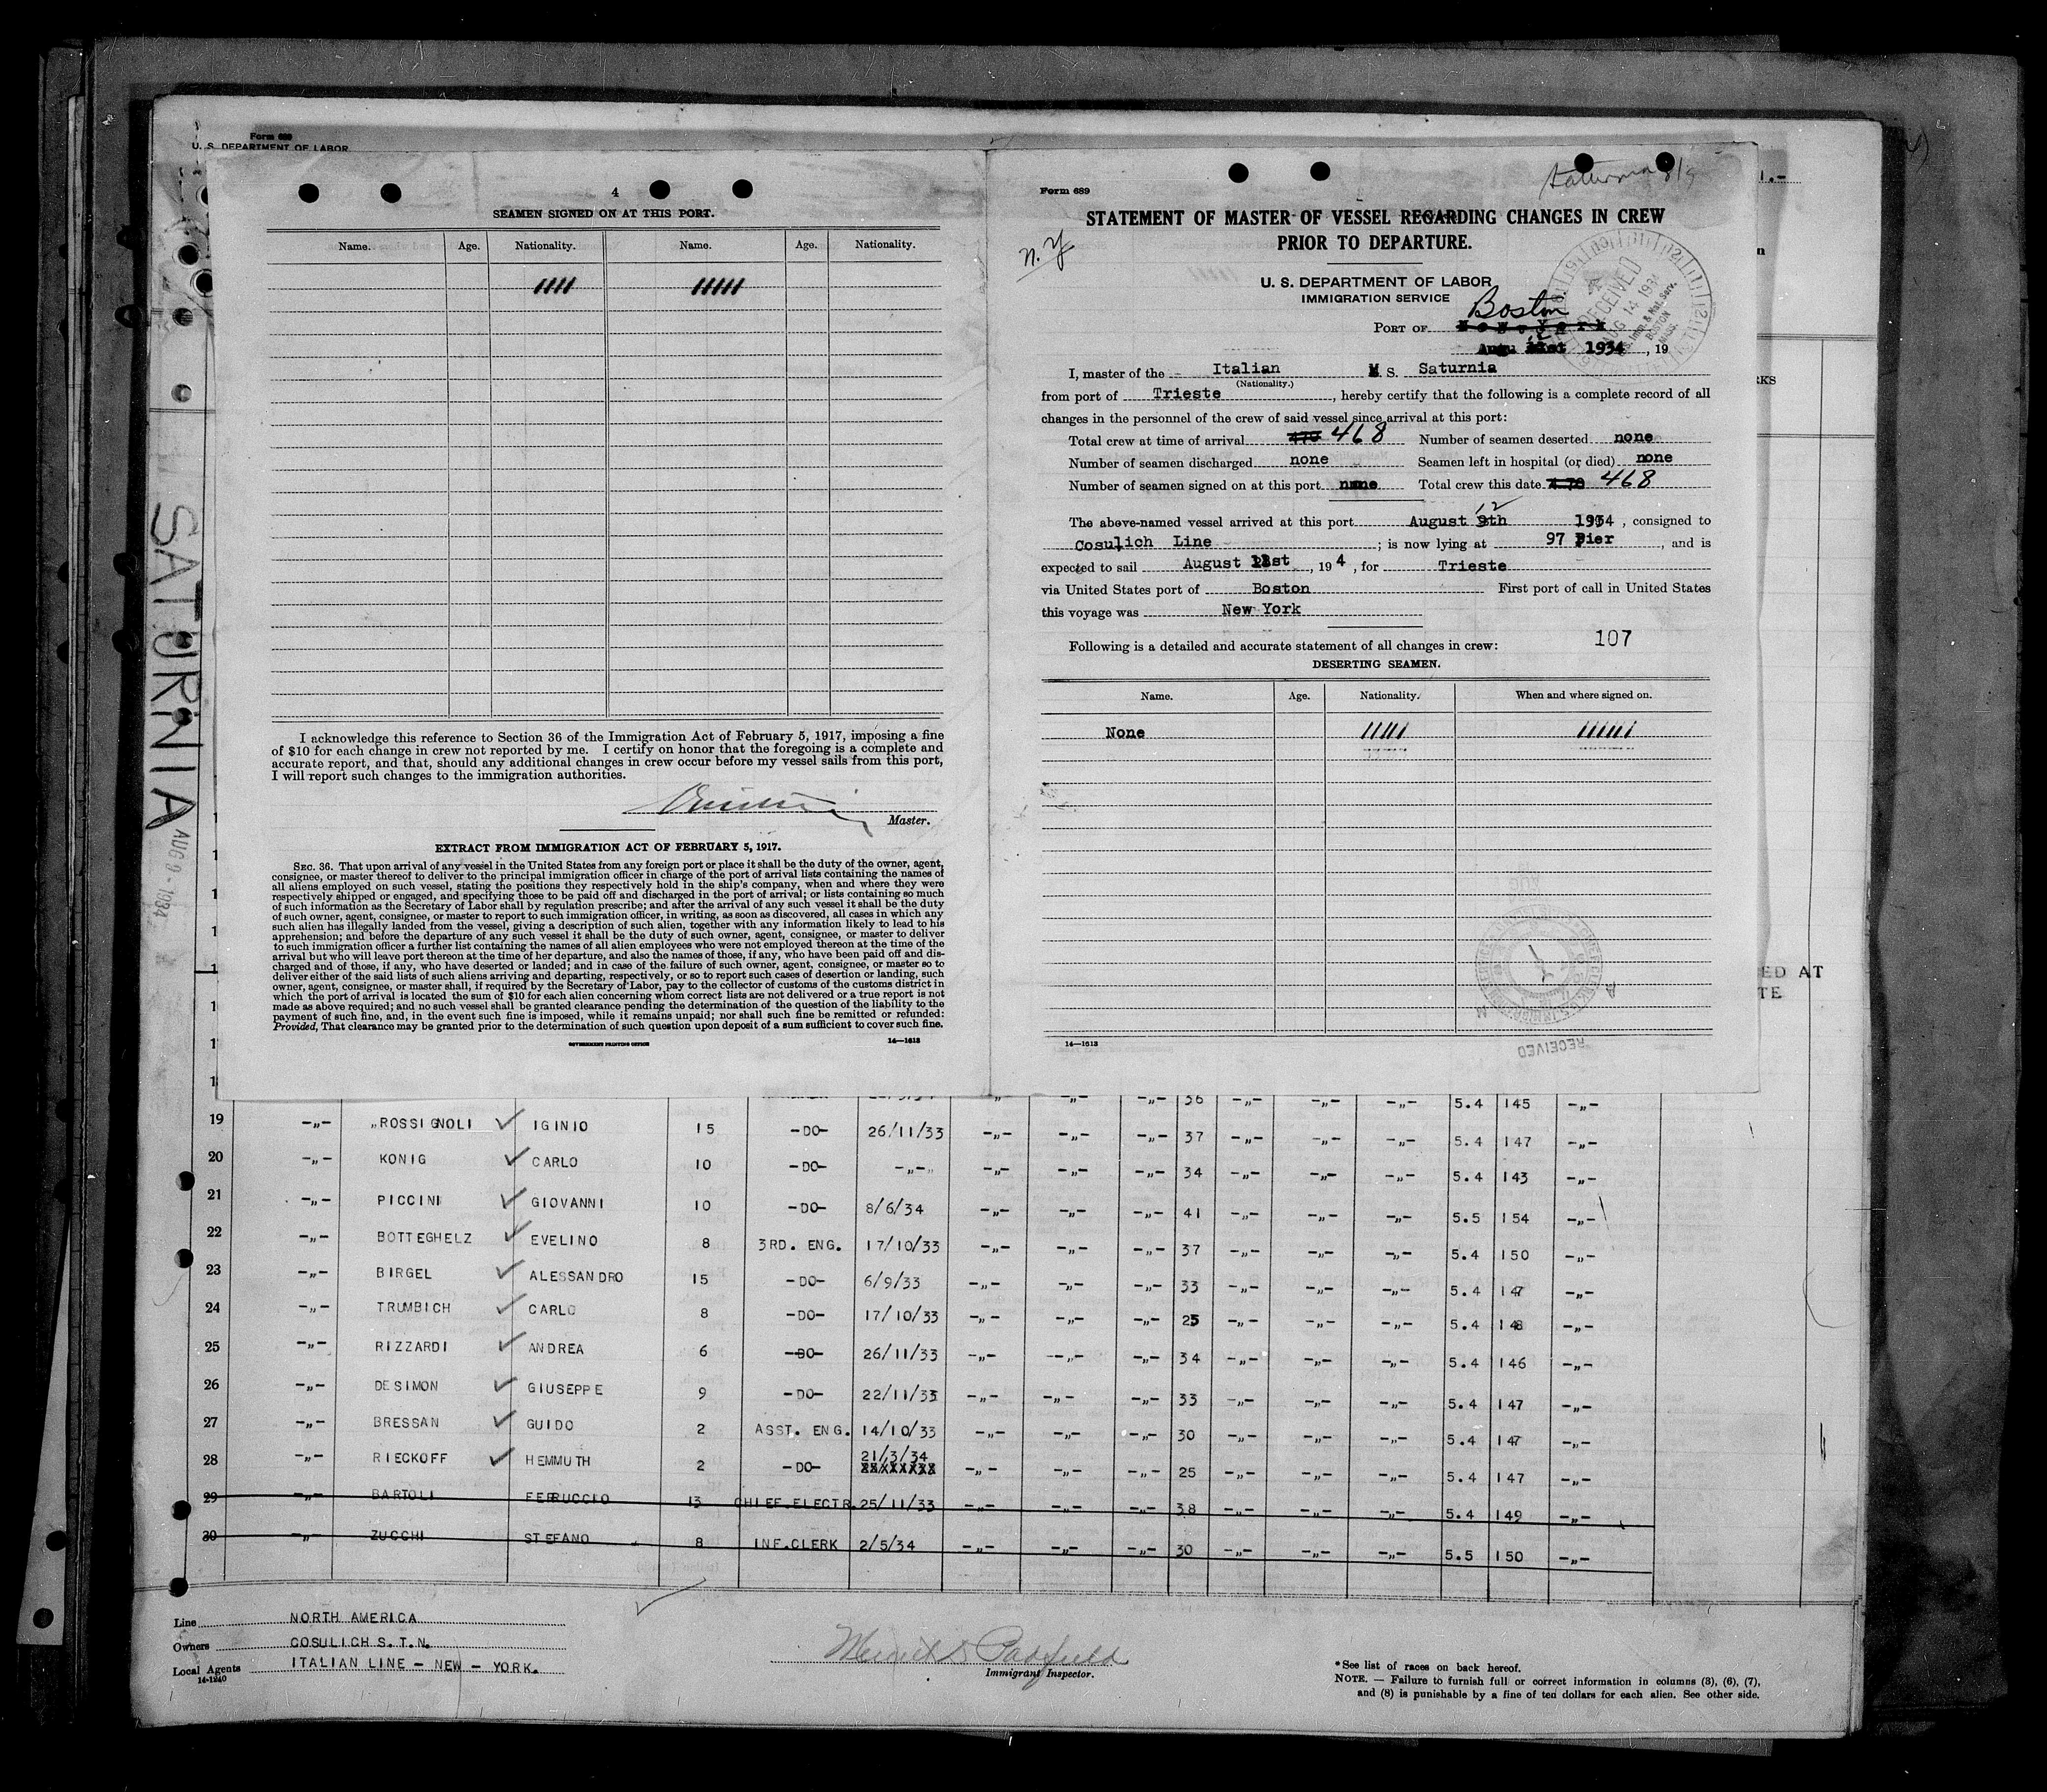 Form 689
U. S. DEPARTMENT OF LABOR
4
SEAMEN SIGNED ON AT THIS PORT.
Name. Age. Nationality. Name. Age. Nationality.
I acknowledge this reference to Section 36 of the Immigration Act of February 5, 1917, imposing a fine
of $10 for each change in crew not reported by me. I certify on honor that the foregoing is a complete and
accurate report, and that, should any additional changes in crew occur before my vessel sails from this port,
I will report such changes to the immigration authorities.
Master.
EXTRACT FROM IMMIGRATION ACT OF FEBRUARY 5, 1917.
SEC. 36. That upon arrival of any vessel in the United States from any foreign port or place it shall be the duty of the owner, agent,
consignee, or master thereof to deliver to the principal immigration officer in charge of the port of arrival lists containing the names of
all aliens employed on such vessel, stating the positions they respectively hold in the ship's company, when and where they were
respectively shipped or engaged, and specifying those to be paid off and discharged in the port of arrival; or lists containing so much
of such information as the Secretary of Labor shall by regulation prescribe; and after the arrival of any such vessel it shall be the duty
of such owner, agent, consignee, or master to report to such immigration officer, in writing, as soon as discovered, all cases in which any
such alien has illegally landed from the vessel, giving a description of such alien, together with any information likely to lead to his
apprehension; and before the departure of any such vessel it shall be the duty of such owner, agent, consignee, or master to deliver
to such immigration officer a further list containing the names of all alien employees who were not employed thereon at the time of the
arrival but who will leave port thereon at the time of her departure, and also the names of those, if any, who have been paid off and dis-
charged and of those, if any, who have deserted or landed; and in case of the failure of such owner, agent, consignee, or master so to
deliver either of the said lists of such aliens arriving and departing, respectively, or so to report such cases of desertion or landing, such
owner, agent, consignee, or master shall, if required by the Secretary of Labor, pay to the collector of customs of the customs district in
which the port of arrival is located the sum of $10 for each alien concerning whom correct lists are not delivered or a true report is not
made as above required; and no such vessel shall be granted clearance pending the determination of the question of the liability to the
payment of such fine, and, in the event such fine is imposed, while it remains unpaid; nor shall such fine be remitted or refunded:
Provided, That clearance may be granted prior to the determination of such question upon deposit of a sum sufficient to cover such fine.
GOVERNMENT PRINTING OFFICE 14—1613
SATURNIA
AUG 9 - 1934
Saturnia 8/9
Form 689
STATEMENT OF MASTER OF VESSEL REGARDING CHANGES IN CREW
PRIOR TO DEPARTURE.
N.Y
U. S. DEPARTMENT OF LABOR
IMMIGRATION SERVICE
RECEIVED
AUG 14 1934
U.S. Imm. & Nat. Serv.
BOSTON
MASS.
Boston
PORT OF New York
12
Augu 1934, 19
I, master of the Italian M. S. Saturnia
(Nationality.)
from port of Trieste, hereby certify that the following is a complete record of all
changes in the personnel of the crew of said vessel since arrival at this port:
Total crew at time of arrival 470 468 Number of seamen deserted none
Number of seamen discharged none Seamen left in hospital (or died) none
Number of seamen signed on at this port none Total crew this date 470 468
12
The above-named vessel arrived at this port August 9th 1934, consigned to
Cosulich Line; is now lying at 97 Pier, and is
expected to sail August st, 19 4, for Trieste
via United States port of Boston First port of call in United States
this voyage was New York
Following is a detailed and accurate statement of all changes in crew: 107
DESERTING SEAMEN.
Name. Age. Nationality. When and where signed on.
None
RECEIVED
14—1613
1.-
RKS
ED AT
TE
36 -„- 5.4 145 -„-
19 -„- „ROSSIGNOLI IGINIO 15 -DO- 26/11/33 -„- -„- -„- 37 -„- -„- -„- 5.4 147 -„-
20 -„- KONIG CARLO 10 -DO- -„- -„- -„- -„- 34 -„- -„- -„- 5.4 143 -„-
21 -„- PICCINI GIOVANNI 10 -DO- 8/6/34 -„- -„- -„- 41 -„- -„- -„- 5.5 154 -„-
22 -„- BOTTEGHELZ EVELINO 8 3RD. ENG. 17/10/33 -„- -„- -„- 37 -„- -„- -„- 5.4 150 -„-
23 -„- BIRGEL ALESSANDRO 15 -DO- 6/9/33 -„- -„- -„- 33 -„- -„- -„- 5.4 147 -„-
24 -„- TRUMBICH CARLO 8 -DO- 17/10/33 -„- -„- -„- 25 -„- -„- -„- 5.4 148 -„-
25 -„- RIZZARDI ANDREA 6 -DO- 26/11/33 -„- -„- -„- 34 -„- -„- -„- 5.4 146 -„-
26 -„- DESIMON GIUSEPPE 9 -DO- 22/11/33 -„- -„- -„- 33 -„- -„- -„- 5.4 147 -„-
27 -„- BRESSAN GUIDO 2 ASST. ENG. 14/10/33 -„- -„- -„- 30 -„- -„- -„- 5.4 147 -„-
28 -„- RIECKOFF HEMMUTH 2 -DO- 21/3/34 -„- -„- -„- 25 -„- -„- -„- 5.4 147 -„-
29 -„- BARTOLI FERRUCCIO 13 CHIEF.ELECTR. 25/11/33 -„- -„- -„- 38 -„- -„- -„- 5.4 149 -„-
30 -„- ZUCCHI STEFANO 8 INF.CLERK 2/5/34 -„- -„- -„- 30 -„- -„- -„- 5.5 150 -„-
Line NORTH AMERICA
Owners COSULICH S.T.N.
Local Agents ITALIAN LINE - NEW - YORK.
14-1240
Padfield
Immigrant Inspector.
*See list of races on back hereof.
NOTE. — Failure to furnish full or correct information in columns (3), (6), (7),
and (8) is punishable by a fine of ten dollars for each alien. See other side.